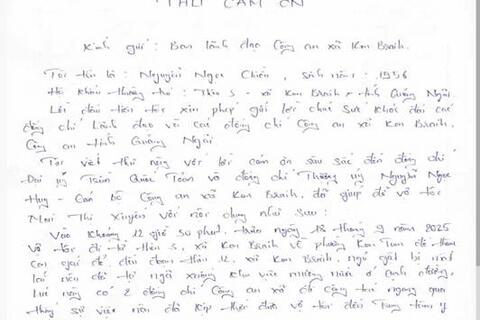 THƯ CẢM ƠN
Kính gửi: Ban lãnh đạo Công an xã Kon Braih.
Tôi tên là: Nguyễn Ngọc Chiến, sinh năm: 1956
Hộ khẩu thường trú: Thôn 3 - xã Kon Braih - tỉnh Quảng Ngãi
Lời đầu tiên tôi xin phép gửi lời chúc Sức khỏe đến các
đồng chí Lãnh đạo và các đồng chí Công an xã Kon Braih,
Công an tỉnh Quảng Ngãi
Tôi viết thư này với lời cảm ơn sâu sắc đến đồng chí
Đại úy Trần Quốc Toản và đồng chí Thượng úy Nguyễn Ngọc
Huy - Cán bộ Công an xã Kon Braih, đã giúp đỡ vợ tôi
Mai Thị Xuyến với nội dung như sau:
Vào khoảng 12 giờ 50 phút, trưa ngày 12 tháng 9 năm 2025
vợ tôi đi từ thôn 3, xã Kon Braih về phường Kon Tum để thăm
con gái đẻ, đến đoạn thôn 12, xã Kon Braih,
ngã xuống khu vực mương nước ở cạnh đường,
Lúc này có 2 đồng chí Công an xã đi công tác ngang qua
thấy sự việc nên đã kịp thời đưa vợ tôi đến Trung tâm y